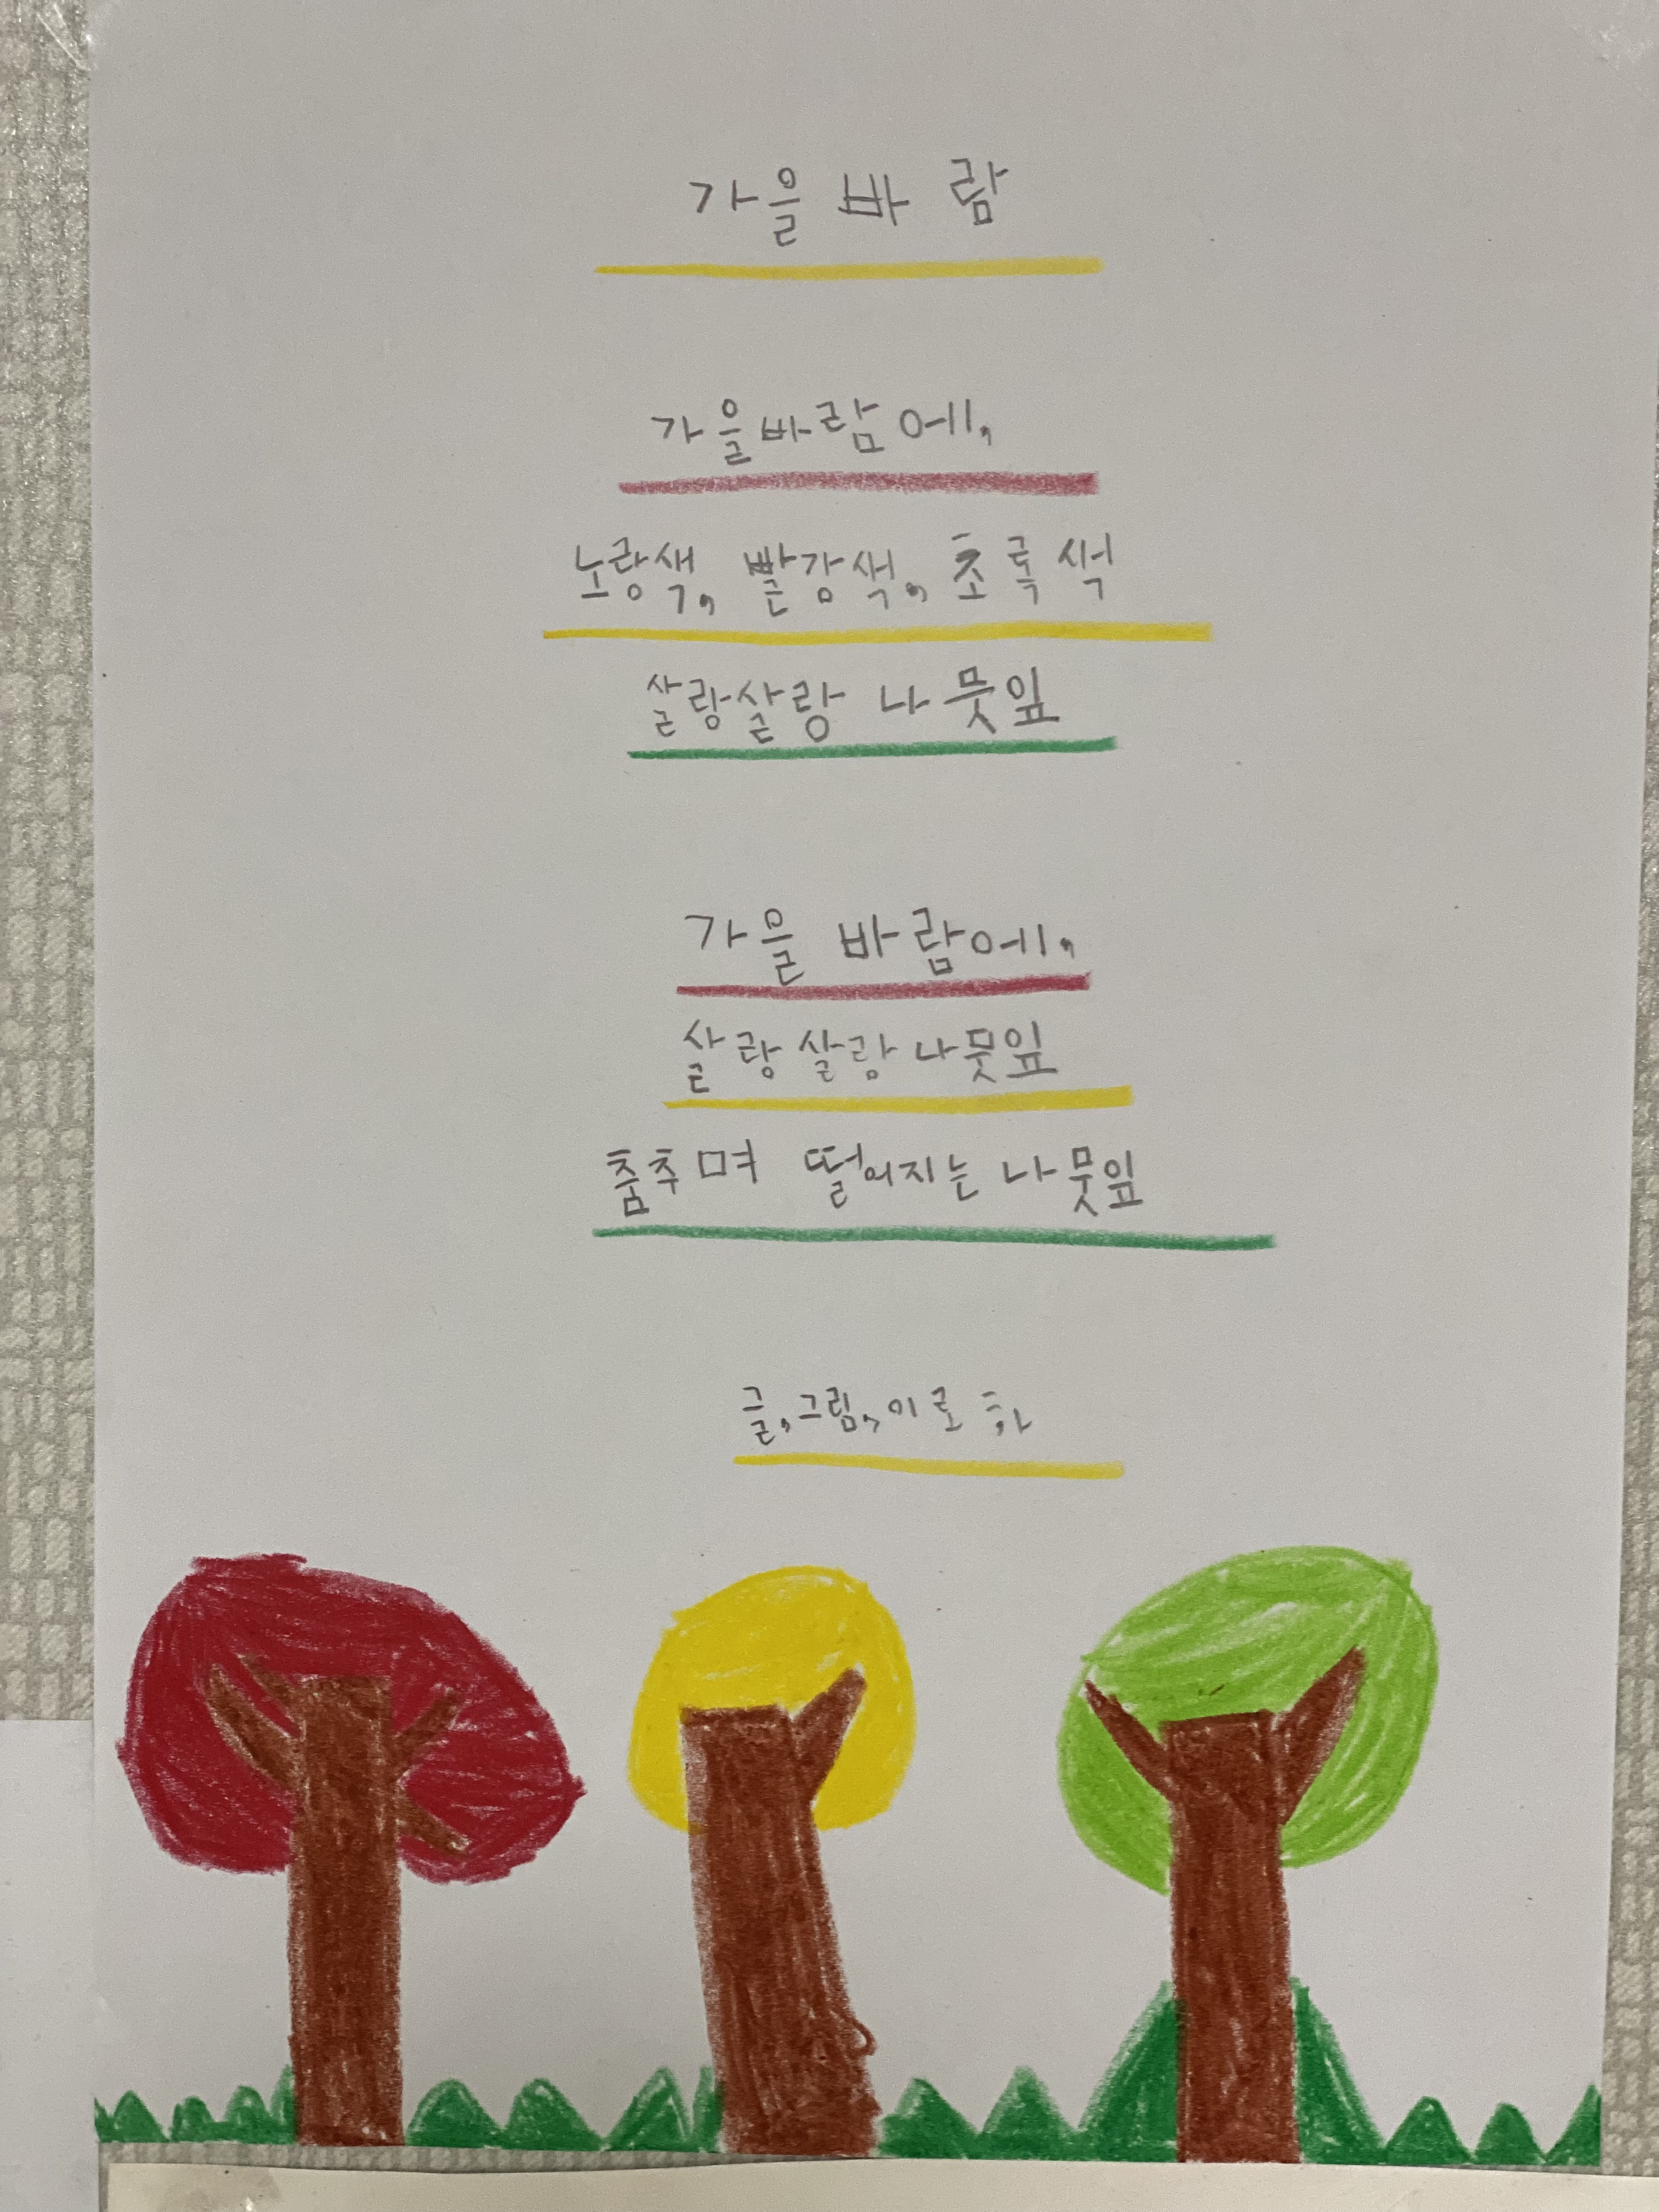 가을 바 람
가을바람에,
노랑색, 빨강색, 초록색
살랑살랑 나뭇잎
가을 바람에,
살랑살랑 나뭇잎
춤추며 떨어지는 나뭇잎
글,그림, 이로하